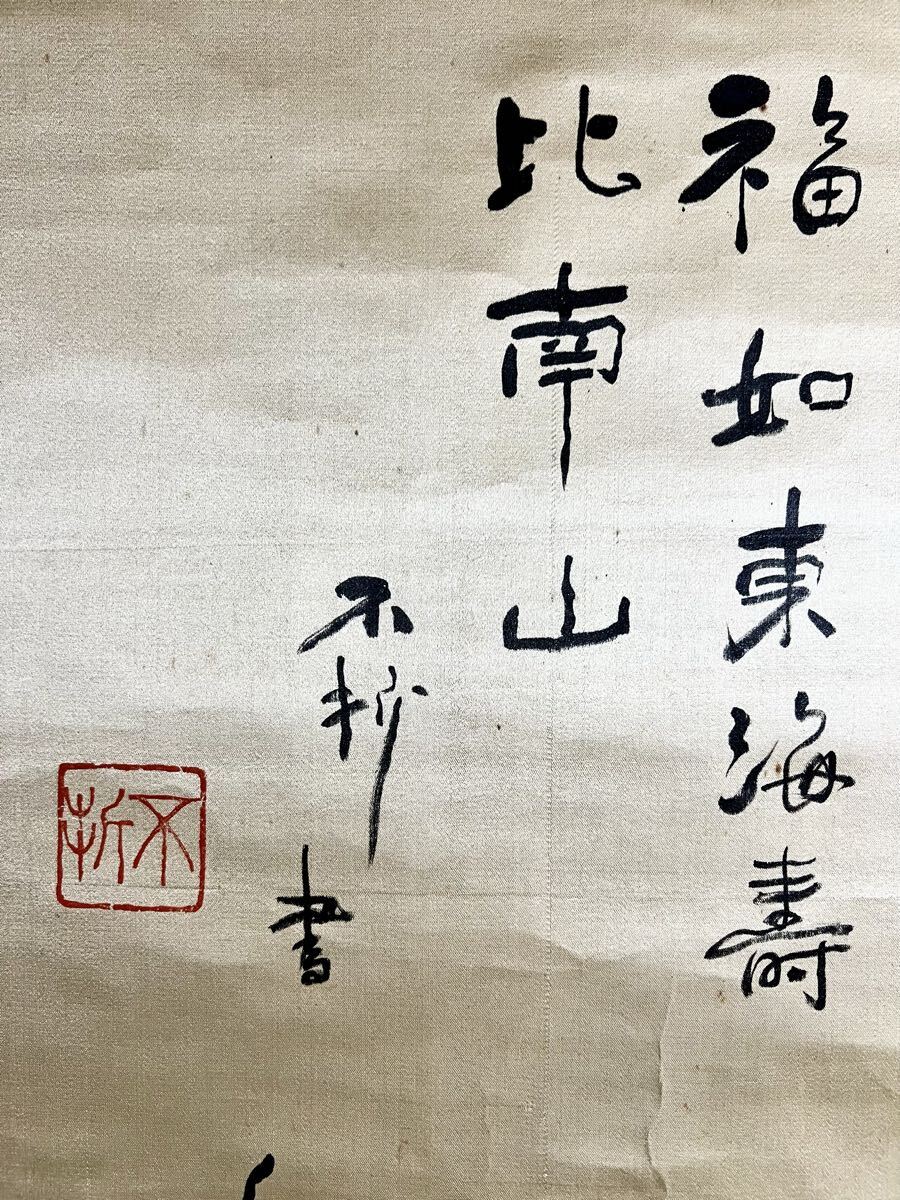 福如東海壽
比南山
不折書
不折